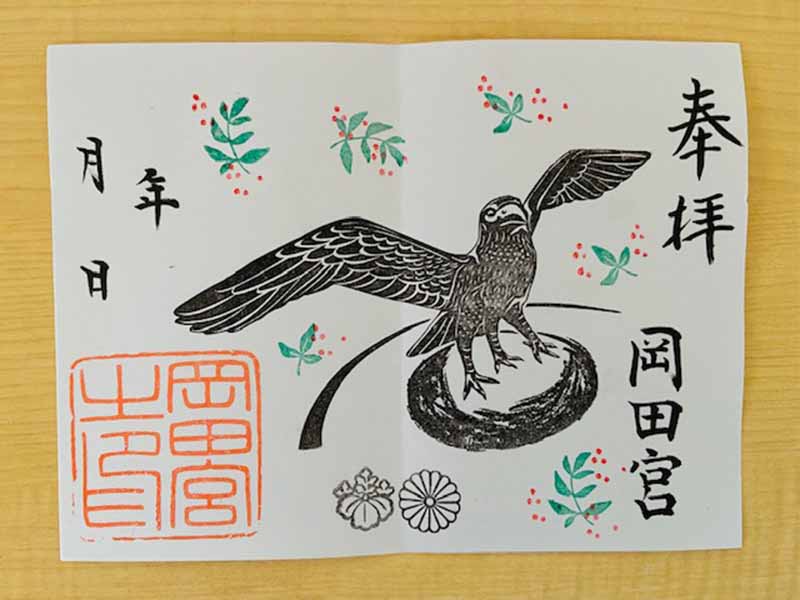 奉拝
岡田宮
年
月 日
岡田宮
之印